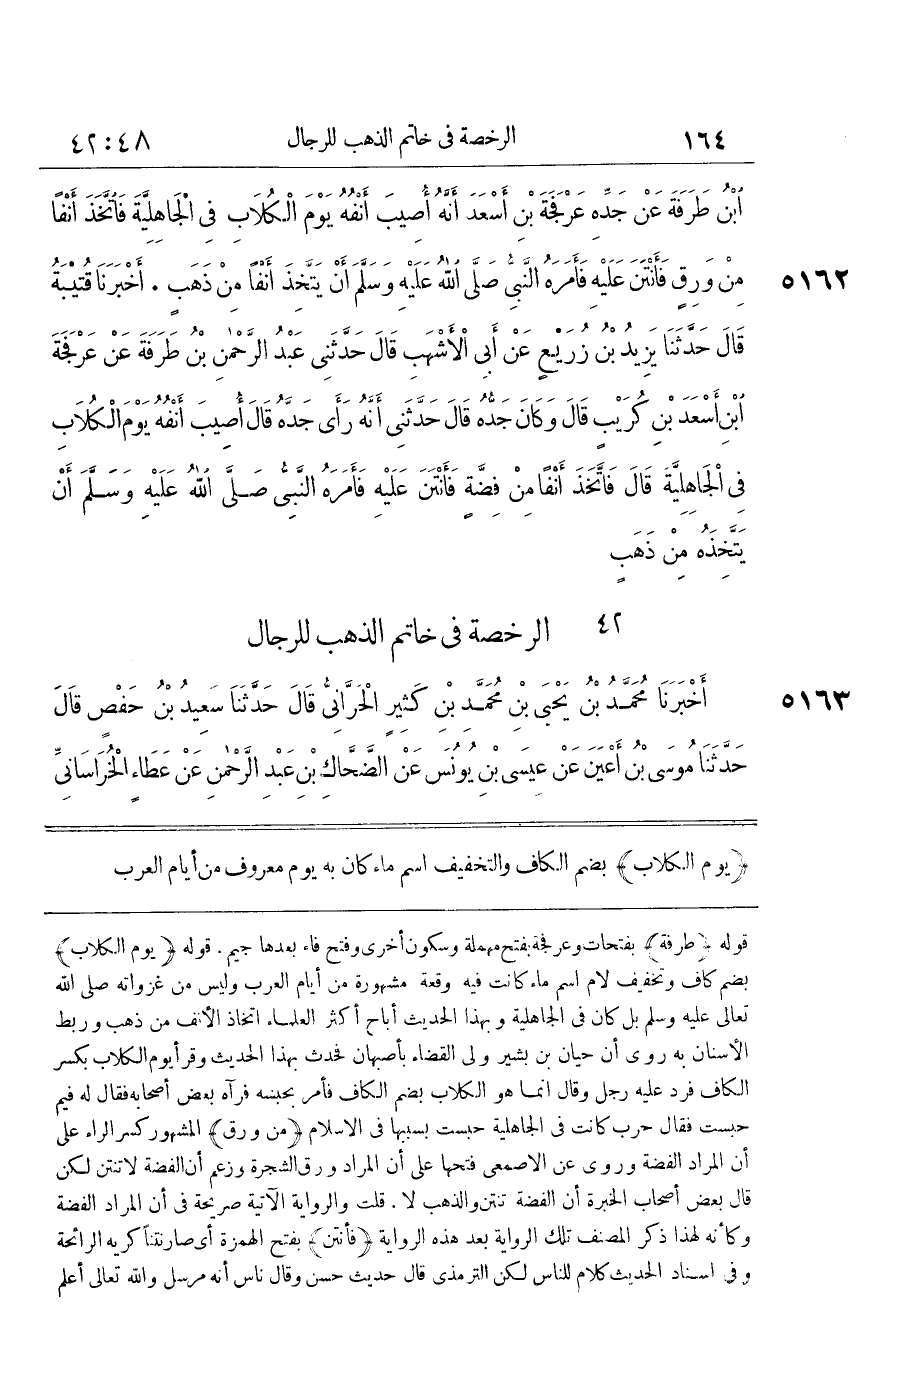 ١٦٤ الرخصة فى خاتم الذهب للرجال ٤٢:٤٨
ابْنُ طَرَفَةَ عَنْ جَدِّهِ عَرْفَجَةَ بْنِ أَسْعَدَ أَنَّهُ أُصِيبَ أَنْفُهُ يَوْمَ الْكُلَابِ فِى الْجَاهِلِيَّةِ فَاتَّخَذَ أَنْفًا
٥١٦٢ مِنْ وَرِقٍ فَأَنْتَنَ عَلَيْهِ فَأَمَرَهُ النَّبِىُّ صَلَّى اللهُ عَلَيْهِ وَسَلَّمَ أَنْ يَتَّخِذَ أَنْفًا مِنْ ذَهَبٍ . أَخْبَرَنَا قُتَيْبَةُ
قَالَ حَدَّثَنَا يَزِيدُ بْنُ زُرَيْعٍ عَنْ أَبِى الْأَشْهَبِ قَالَ حَدَّثَنِى عَبْدُ الرَّحْمٰنِ بْنُ طَرَفَةَ عَنْ عَرْفَجَةَ
ابْنِ أَسْعَدَ بْنِ كُرَيْبٍ قَالَ وَكَانَ جَدُّهُ قَالَ حَدَّثَنِى أَنَّهُ رَأَى جَدَّهُ قَالَ أُصِيبَ أَنْفُهُ يَوْمَ الْكُلَابِ
فِى الْجَاهِلِيَّةِ قَالَ فَاتَّخَذَ أَنْفًا مِنْ فِضَّةٍ فَأَنْتَنَ عَلَيْهِ فَأَمَرَهُ النَّبِىُّ صَلَّى اللهُ عَلَيْهِ وَسَلَّمَ أَنْ
يَتَّخِذَهُ مِنْ ذَهَبٍ
٤٢ الرخصة فى خاتم الذهب للرجال
٥١٦٣ أَخْبَرَنَا مُحَمَّدُ بْنُ يَحْيَى بْنِ مُحَمَّدِ بْنِ كَثِيرٍ الْحَرَّانِىُّ قَالَ حَدَّثَنَا سَعِيدُ بْنُ حَفْصٍ قَالَ
حَدَّثَنَا مُوسَى بْنُ أَعْيَنَ عَنْ عِيسَى بْنِ يُونُسَ عَنِ الضَّحَّاكِ بْنِ عَبْدِ الرَّحْمٰنِ عَنْ عَطَاءٍ الْخُرَاسَانِىِّ
﴿يوم الكلاب﴾ بضم الكاف والتخفيف اسم ماء كان به يوم معروف من أيام العرب
قوله ﴿طرفة﴾ بفتحات وعرفجة بفتح مهملة وسكون أخرى وفتح فاء بعدها جيم . قوله ﴿يوم الكلاب﴾
بضم كاف وتخفيف لام اسم ماء كانت فيه وقعة مشهورة من أيام العرب وليس من غزواته صلى الله
تعالى عليه وسلم بل كان فى الجاهلية وبهذا الحديث أباح أكثر العلماء اتخاذ الأنف من ذهب وربط
الأسنان به روى أن حيان بن بشير ولى القضاء بأصبهان فحدث بهذا الحديث وقرأ يوم الكلاب بكسر
الكاف فرد عليه رجل وقال انما هو الكلاب بضم الكاف فأمر بحبسه فرآه بعض أصحابه فقال له فيم
حبست فقال حرب كانت فى الجاهلية حبست بسببها فى الاسلام ﴿من ورق﴾ المشهور كسر الراء على
أن المراد الفضة وروى عن الاصمعى فتحها على أن المراد ورق الشجرة وزعم أن الفضة لاتنتن لكن
قال بعض أصحاب الخبرة أن الفضة تنتن والذهب لا . قلت والرواية الآتية صريحة فى أن المراد الفضة
وكأنه لهذا ذكر المصنف تلك الرواية بعد هذه الرواية ﴿فأنتن﴾ بفتح الهمزة أى صار نتناً كريه الرائحة
وفى اسناد الحديث كلام للناس لكن الترمذى قال حديث حسن وقال ناس أنه مرسل والله تعالى أعلم